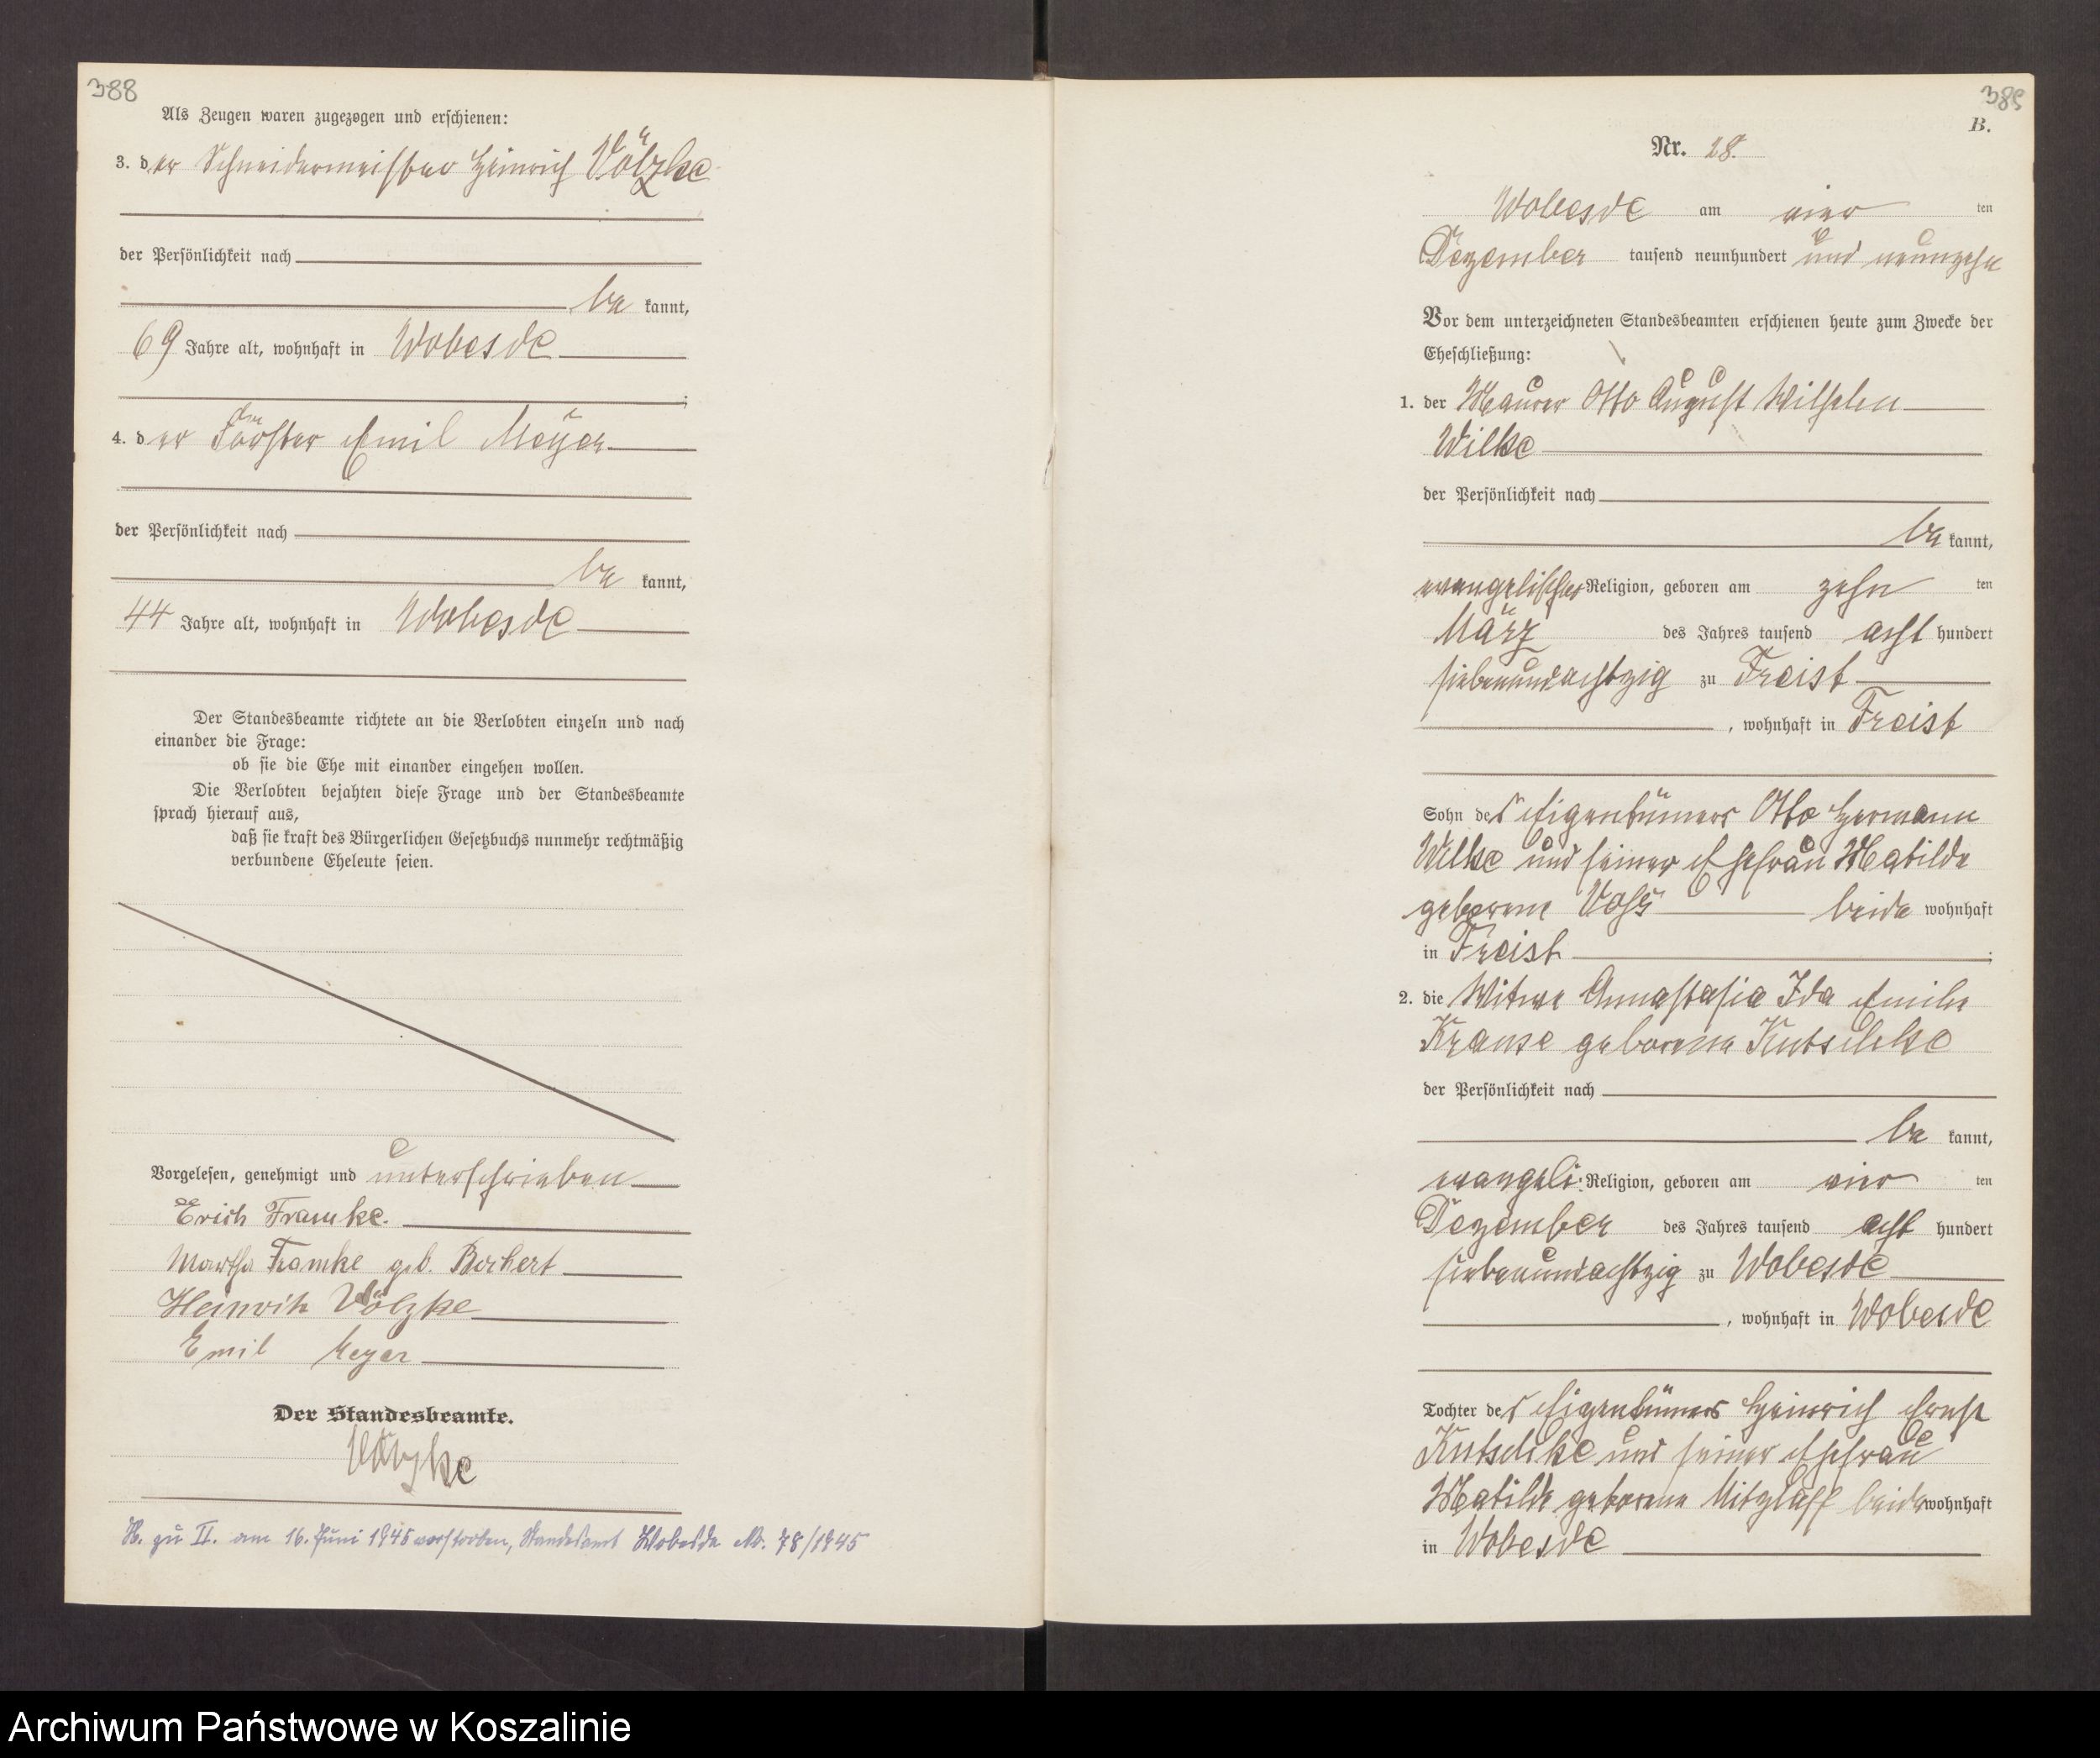 388
Als Zeugen waren zugezogen und erschienen:
3. der Schneidermeister Heinrich Völzke
der Persönlichkeit nach
be kannt,
69 Jahre alt, wohnhaft in Wobesde
4. der Förster Emil Meyer
der Persönlichkeit nach
be kannt,
44 Jahre alt, wohnhaft in Wobesde
Der Standesbeamte richtete an die Verlobten einzeln und nach
einander die Frage:
ob sie die Ehe mit einander eingehen wollen.
Die Verlobten bejahten diese Frage und der Standesbeamte
sprach hierauf aus,
daß sie kraft des Bürgerlichen Gesetzbuchs nunmehr rechtmäßig
verbundene Eheleute seien.
Vorgelesen, genehmigt und unterschrieben
Erich Framke.
Martha Framke geb. Borkert
Heinrich Völzke
Emil Meyer
Der Standesbeamte.
H. zu II. am 16. Juni 1945 verstorben, Standesamt Wobesde No. 78/1945
389
B.
Nr. 28.
Wobesde am vier ten
Dezember tausend neunhundert und neunzehn
Vor dem unterzeichneten Standesbeamten erschienen heute zum Zwecke der
Eheschließung:
1. der Maurer Otto August Wilhelm
Wilke
der Persönlichkeit nach
be kannt,
evangelischer Religion, geboren am zehn ten
März des Jahres tausend acht hundert
siebenundachtzig zu Freist
, wohnhaft in Freist
Sohn des Eigentümers Otto Hermann
Wilke und seiner Ehefrau Matilde
geborene Voß beide wohnhaft
in Freist
2. die Witwe Annastasia Ida Emilie
Krause geborene Kutschke
der Persönlichkeit nach
be kannt,
evangeli: Religion, geboren am vier ten
Dezember des Jahres tausend acht hundert
siebenundachtzig zu Wobesde
, wohnhaft in Wobesde
Tochter des Eigentümers Heinrich Ernst
Kutschke und seiner Ehefrau
Matilde geborene Mitzlaff beide wohnhaft
in Wobesde
Archiwum Państwowe w Koszalinie